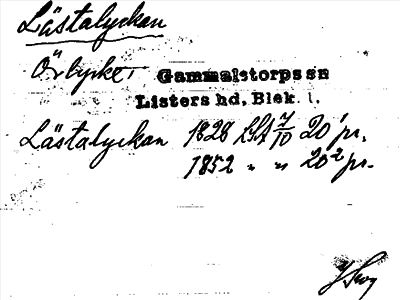 Lästalyckan
Örlycke, Gammalstorps sn
Listers hd, Blek. l.
Lästalyckan 1828 LSA 7/10 20¹ pr.
1852 " " 20² pr.